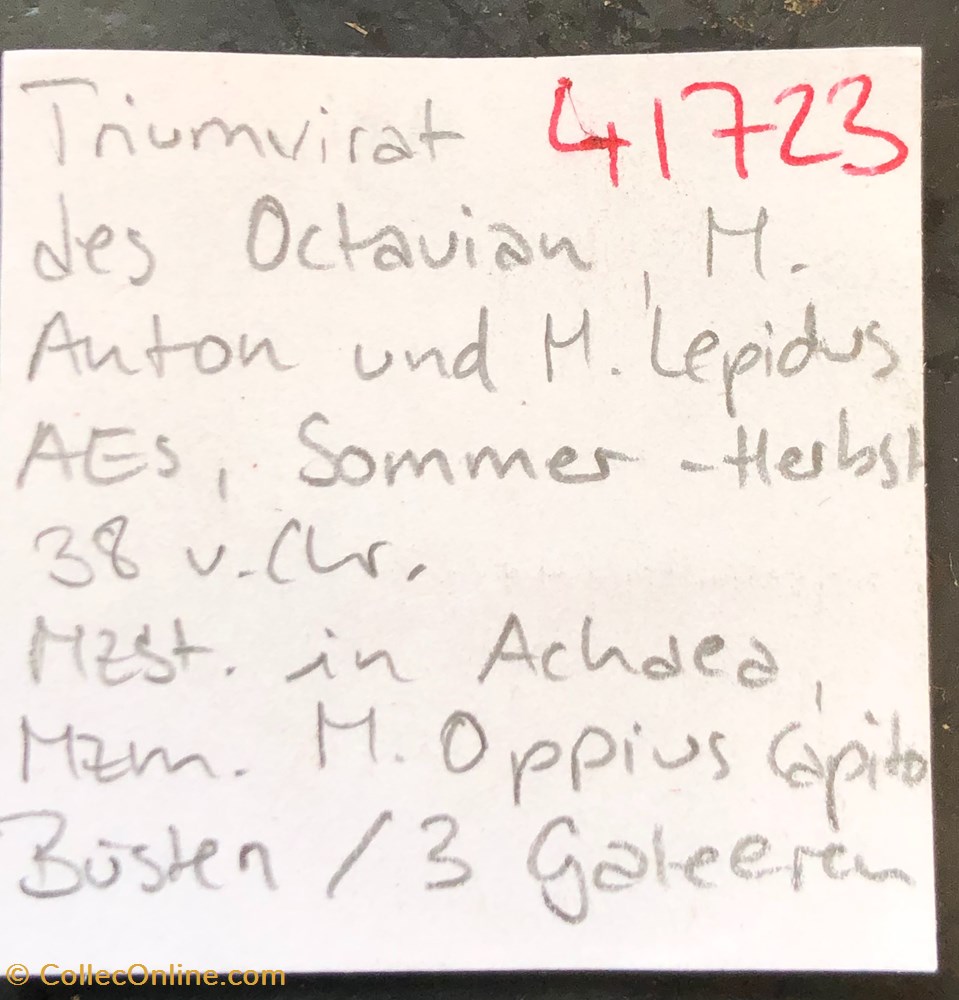 Triumvirat 41723
des Octavian, M.
Anton und M. Lepidus
AEs, Sommer - Herbst
38 v. Chr.
Mzst. in Achaea,
Mzm. M. Oppius Capito
Büsten / 3 Galeeren
© CollecOnline.com